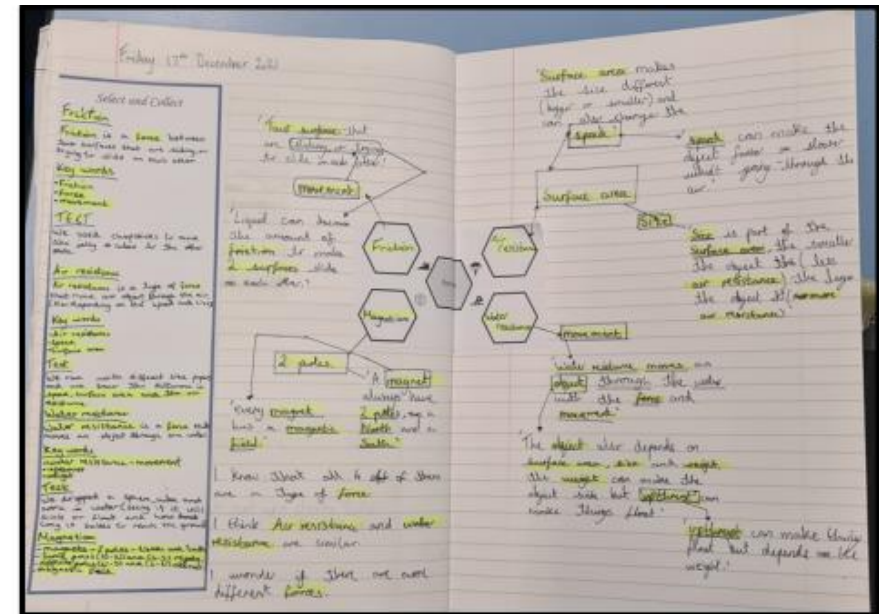 Friday 17th December 2021
Select and Collect
Friction
Friction is a force between
two surfaces that are sliding, or
trying to slide on each other
Key words
-friction
-force
-movement
TEST
We used
Air resistance
Air resistance is a type of force
that moves an object through the air
depending on the speed and
Key words
-Air resistance
-speed
-surface area
Test
speed, surface area and the air
resistance
Water resistance
Water resistance is a force that
moves an object through the water
Key words
-water resistance -movement
-weight
Test
We dropped a sphere, cube and
in water (seeing if it will
sink or float and how
long it takes to reach the ground
Magnetism
-magnets - 2 poles -
-magnetic field
'Two surfaces that
are sliding or trying
to slide
movement
'Liquid can
the amount of
friction to make
2 surfaces slide
on each other.'
Friction
Magnetism
Air resistance
Water resistance
2 poles
'Every magnet
has a magnetic
field'
'A magnet
always have
2 poles,
North and a
South.'
I know that all 4 of them
are a type of force
I think Air resistance and water
resistance are similar
I wonder if there are more
different forces.
'Surface area makes
the size different
(bigger or smaller) and
can also change the
speed
'speed can make the
object faster or slower
whilst going through the
air.'
Surface area
Size
Size is part of the
surface area the smaller
the object the (less
air resistance) the bigger
the object (more
air resistance)
movement
'Water resistance moves an
object through the water
with the force and
movement'
'The object also depends on
surface area, size and weight.
the weight can make the
object sink but upthrust can
make things float'
'upthrust can make things
float but depends on the
weight.'